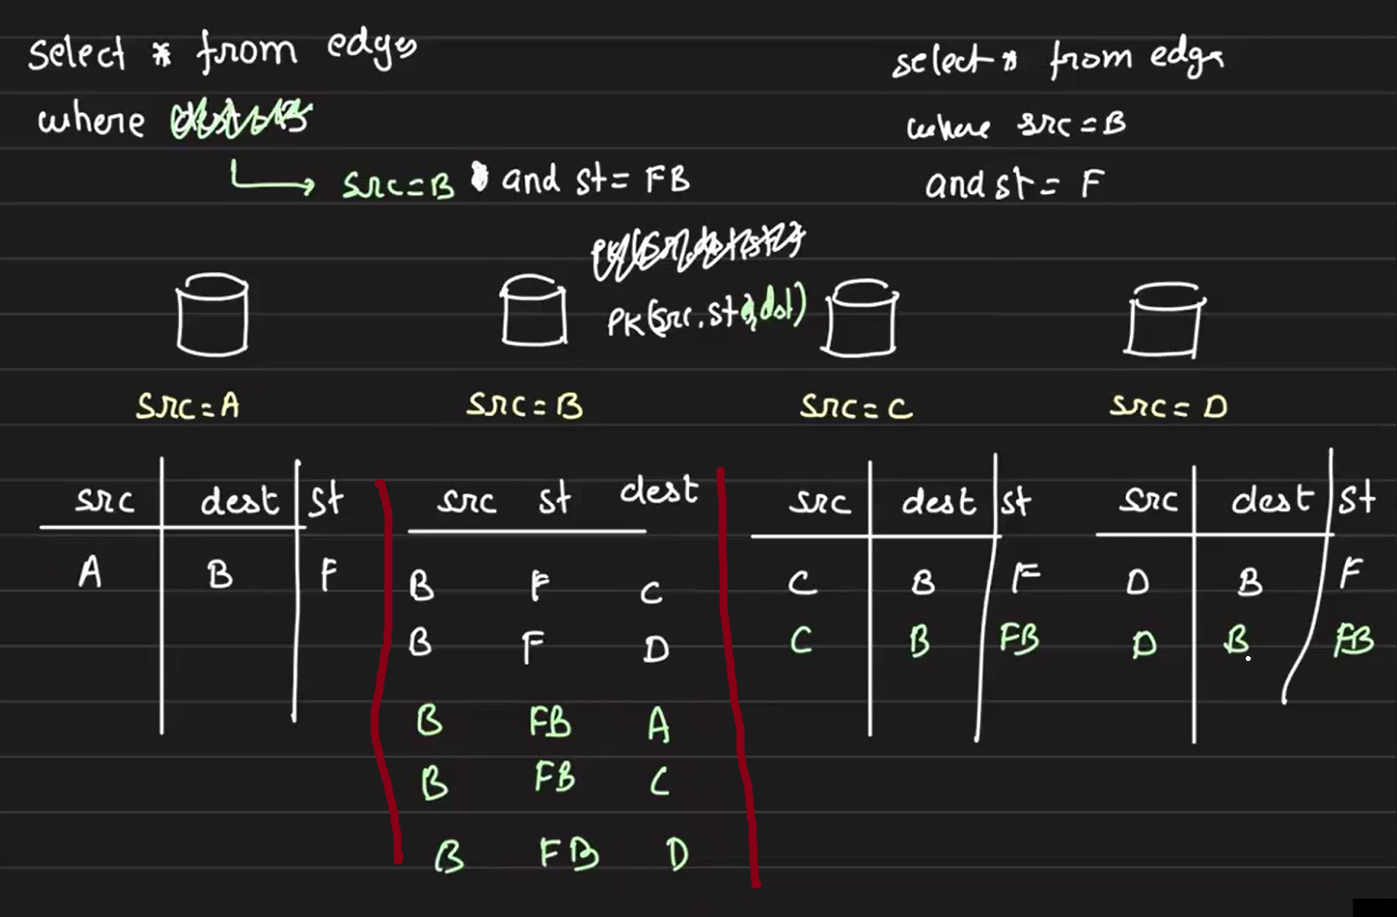 select * from edges
where
src=B and st= FB
select * from edge
where src=B
and st= F
PK(src, st, dst)
src=A
src=B
src=C
src=D
src dest st
A B F
src st dest
B F C
B F D
B FB A
B FB C
B FB D
src dest st
C B F
C B FB
src dest st
D B F
D B FB